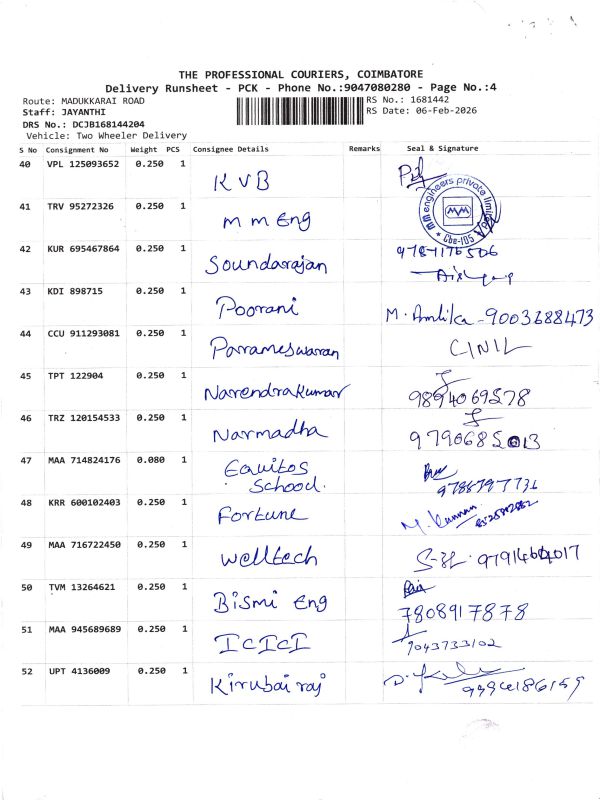 THE PROFESSIONAL COURIERS, COIMBATORE
Delivery Runsheet - PCK - Phone No.:9047080280 - Page No.:4
Route: MADUKKARAI ROAD RS No.: 1681442
Staff: JAYANTHI RS Date: 06-Feb-2026
DRS No.: DCJB168144204
Vehicle: Two Wheeler Delivery
S No Consignment No Weight PCS Consignee Details Remarks Seal & Signature
40 VPL 125093652 0.250 1 KVB
41 TRV 95272326 0.250 1 mm Eng mm engineers private limited Cbe-105
42 KUR 695467864 0.250 1 Soundarajan 9787176506
43 KDI 898715 0.250 1 Poorani M. 9003688473
44 CCU 911293081 0.250 1 Parrameswaran CINIL
45 TPT 122904 0.250 1 Narendrakumar 9894069578
46 TRZ 120154533 0.250 1 Narmadha
47 MAA 714824176 0.080 1 Equitos School. 9788797731
48 KRR 600102403 0.250 1 Fortune M. Kannan
49 MAA 716722450 0.250 1 Welltech
50 TVM 13264621 0.250 1 Bismi Eng 7808917878
51 MAA 945689689 0.250 1 ICICI 9043733102
52 UPT 4136009 0.250 1 Kirubairaj 9994186159